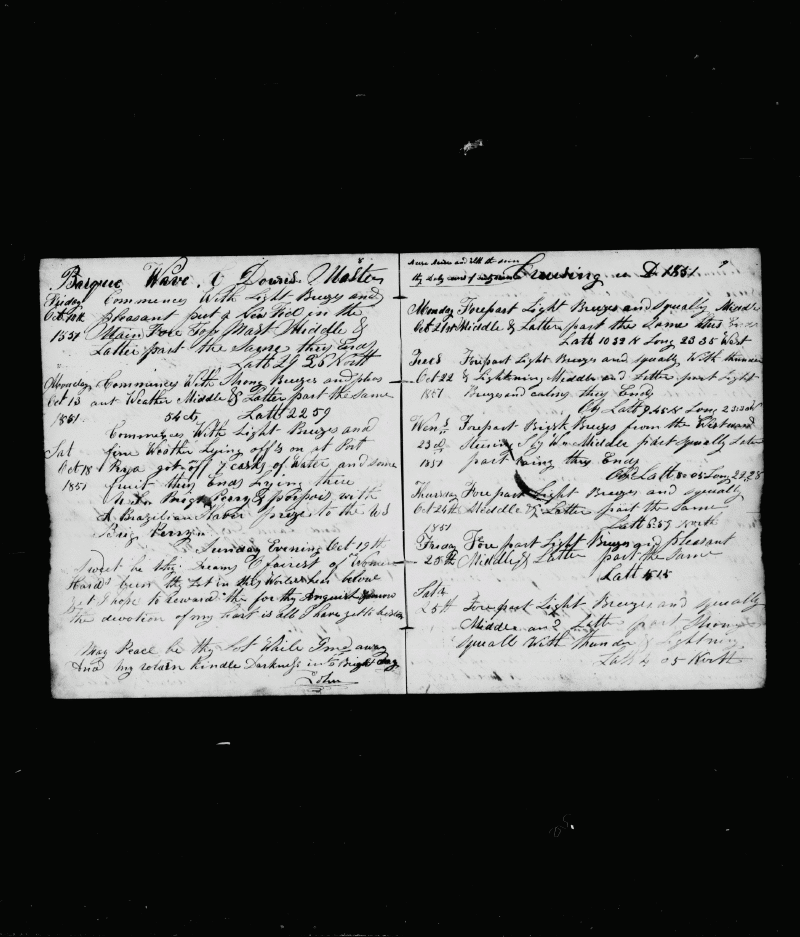 8
Barque Wave. C Downs Master
Friday Commences With Light Breezes and
Oct pleasant put a New Fid in the
1851 Main Fore Top Mast Middle &
Latter part the Same thus Ends
Latt 29 28 North
Monday Commences With Strong Breezes and pleas
Oct 13 ant Weather Middle & Latter part the same
1851 Latt 22 59
Commences With Light Breezes and
Sat fine Weather Lying off & on at Port
Oct 18 Praya got off 7 casks of Water and some
1851 fruit thus Ends Lying there
U.S. Brigs Perry & porpois with
A Brazilian Slaver prize to the US
Brig Perry
Sunday Evening Oct 19th
Sweet be thy Dreams O fairest of Women
Hard been thy Lot in this World here below
But I hope to reward the for thy Anguish
the devotion of my heart is all I have got to bestow
May Peace be thy Lot While I'm away
And my return kindle Darkness into Bright day
John
9
Cruising A D 1851
Monday Forepart Light Breezes and squally Middle
Oct 21st Middle & Latter part the Same thus Ends
Latt 10 32 N Long 23 35 West
Tues Forepart Light Breezes and squally With thunder
Oct 22 & Lightning Middle and Latter part Light
1851 Breezes and calms thus Ends
Latt 9.45 N Long
Wens Forepart Brisk Breezes from the Westward
23d Steering S by W Middle part squally Latter
1851 part thus Ends
Latt 8 05 Long 22,28
Thursday Fore part Light Breezes and squally
Oct 24th Middle & Latter part the Same
1851 Latt North
Friday Fore part Light Breezes and pleasant
25th Middle & Latter part the Same
Latt
Sat
25th Fore part Light Breezes and squally
Middle and Latter part
squall With thunder & Lightning
Latt 4 05 North